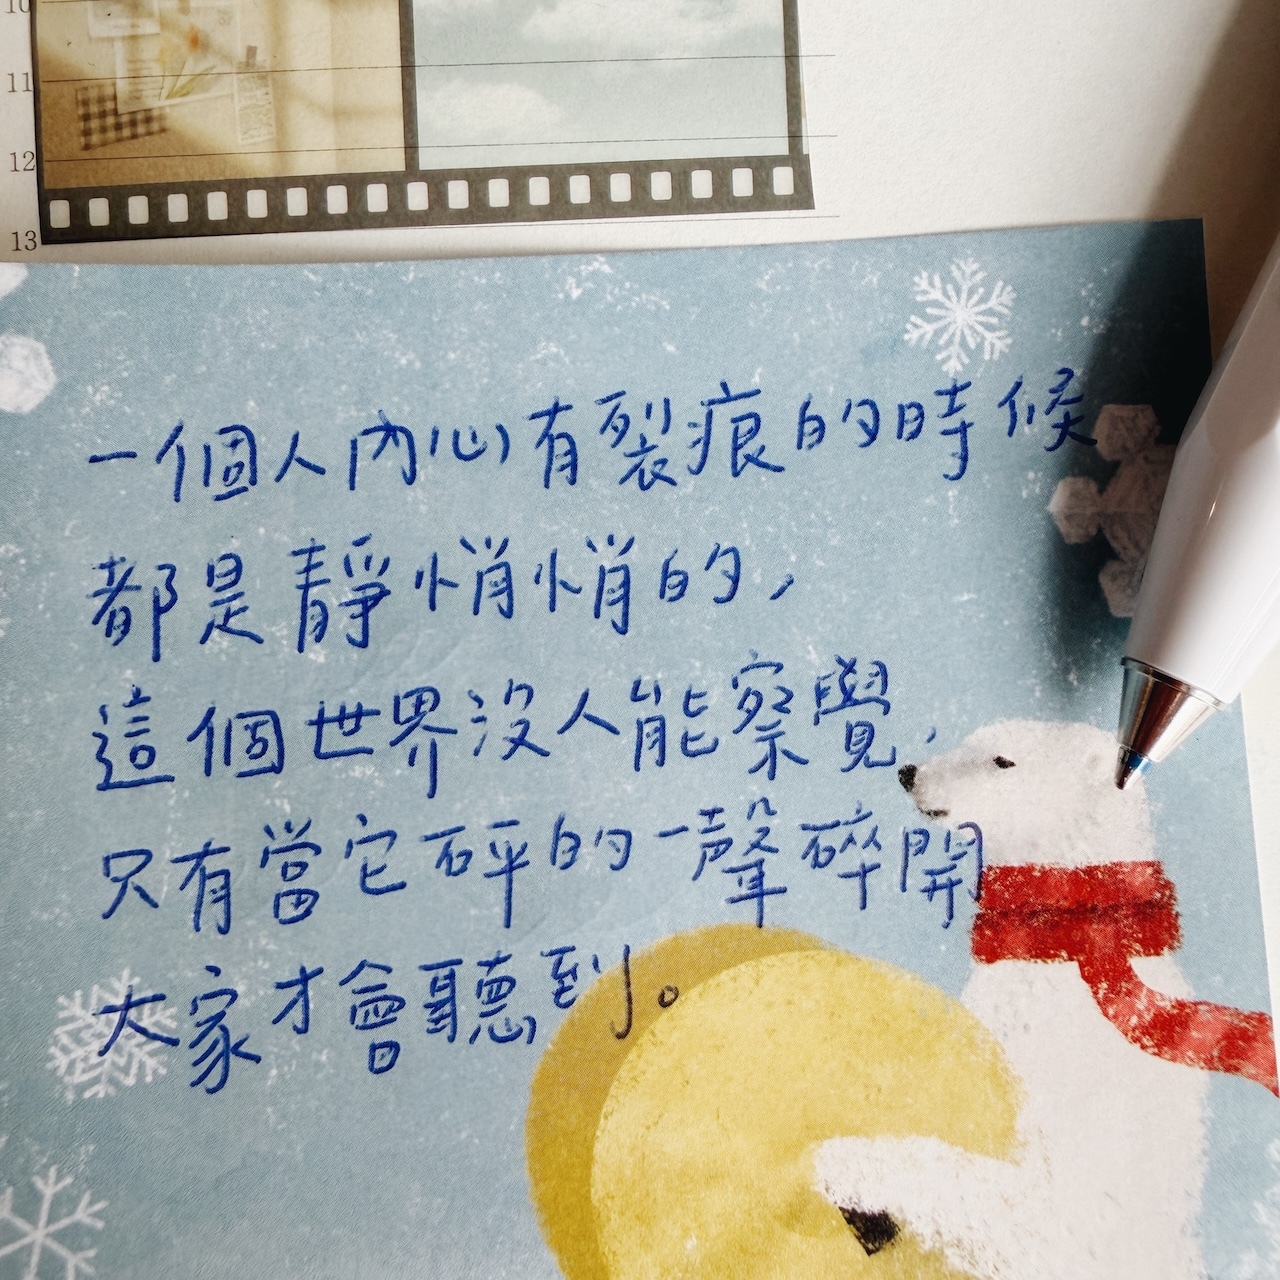 10
11
12
13
一個人內心有裂痕的時候
都是靜悄悄的，
這個世界沒人能察覺，
只有當它砰的一聲碎開
大家才會聽到。